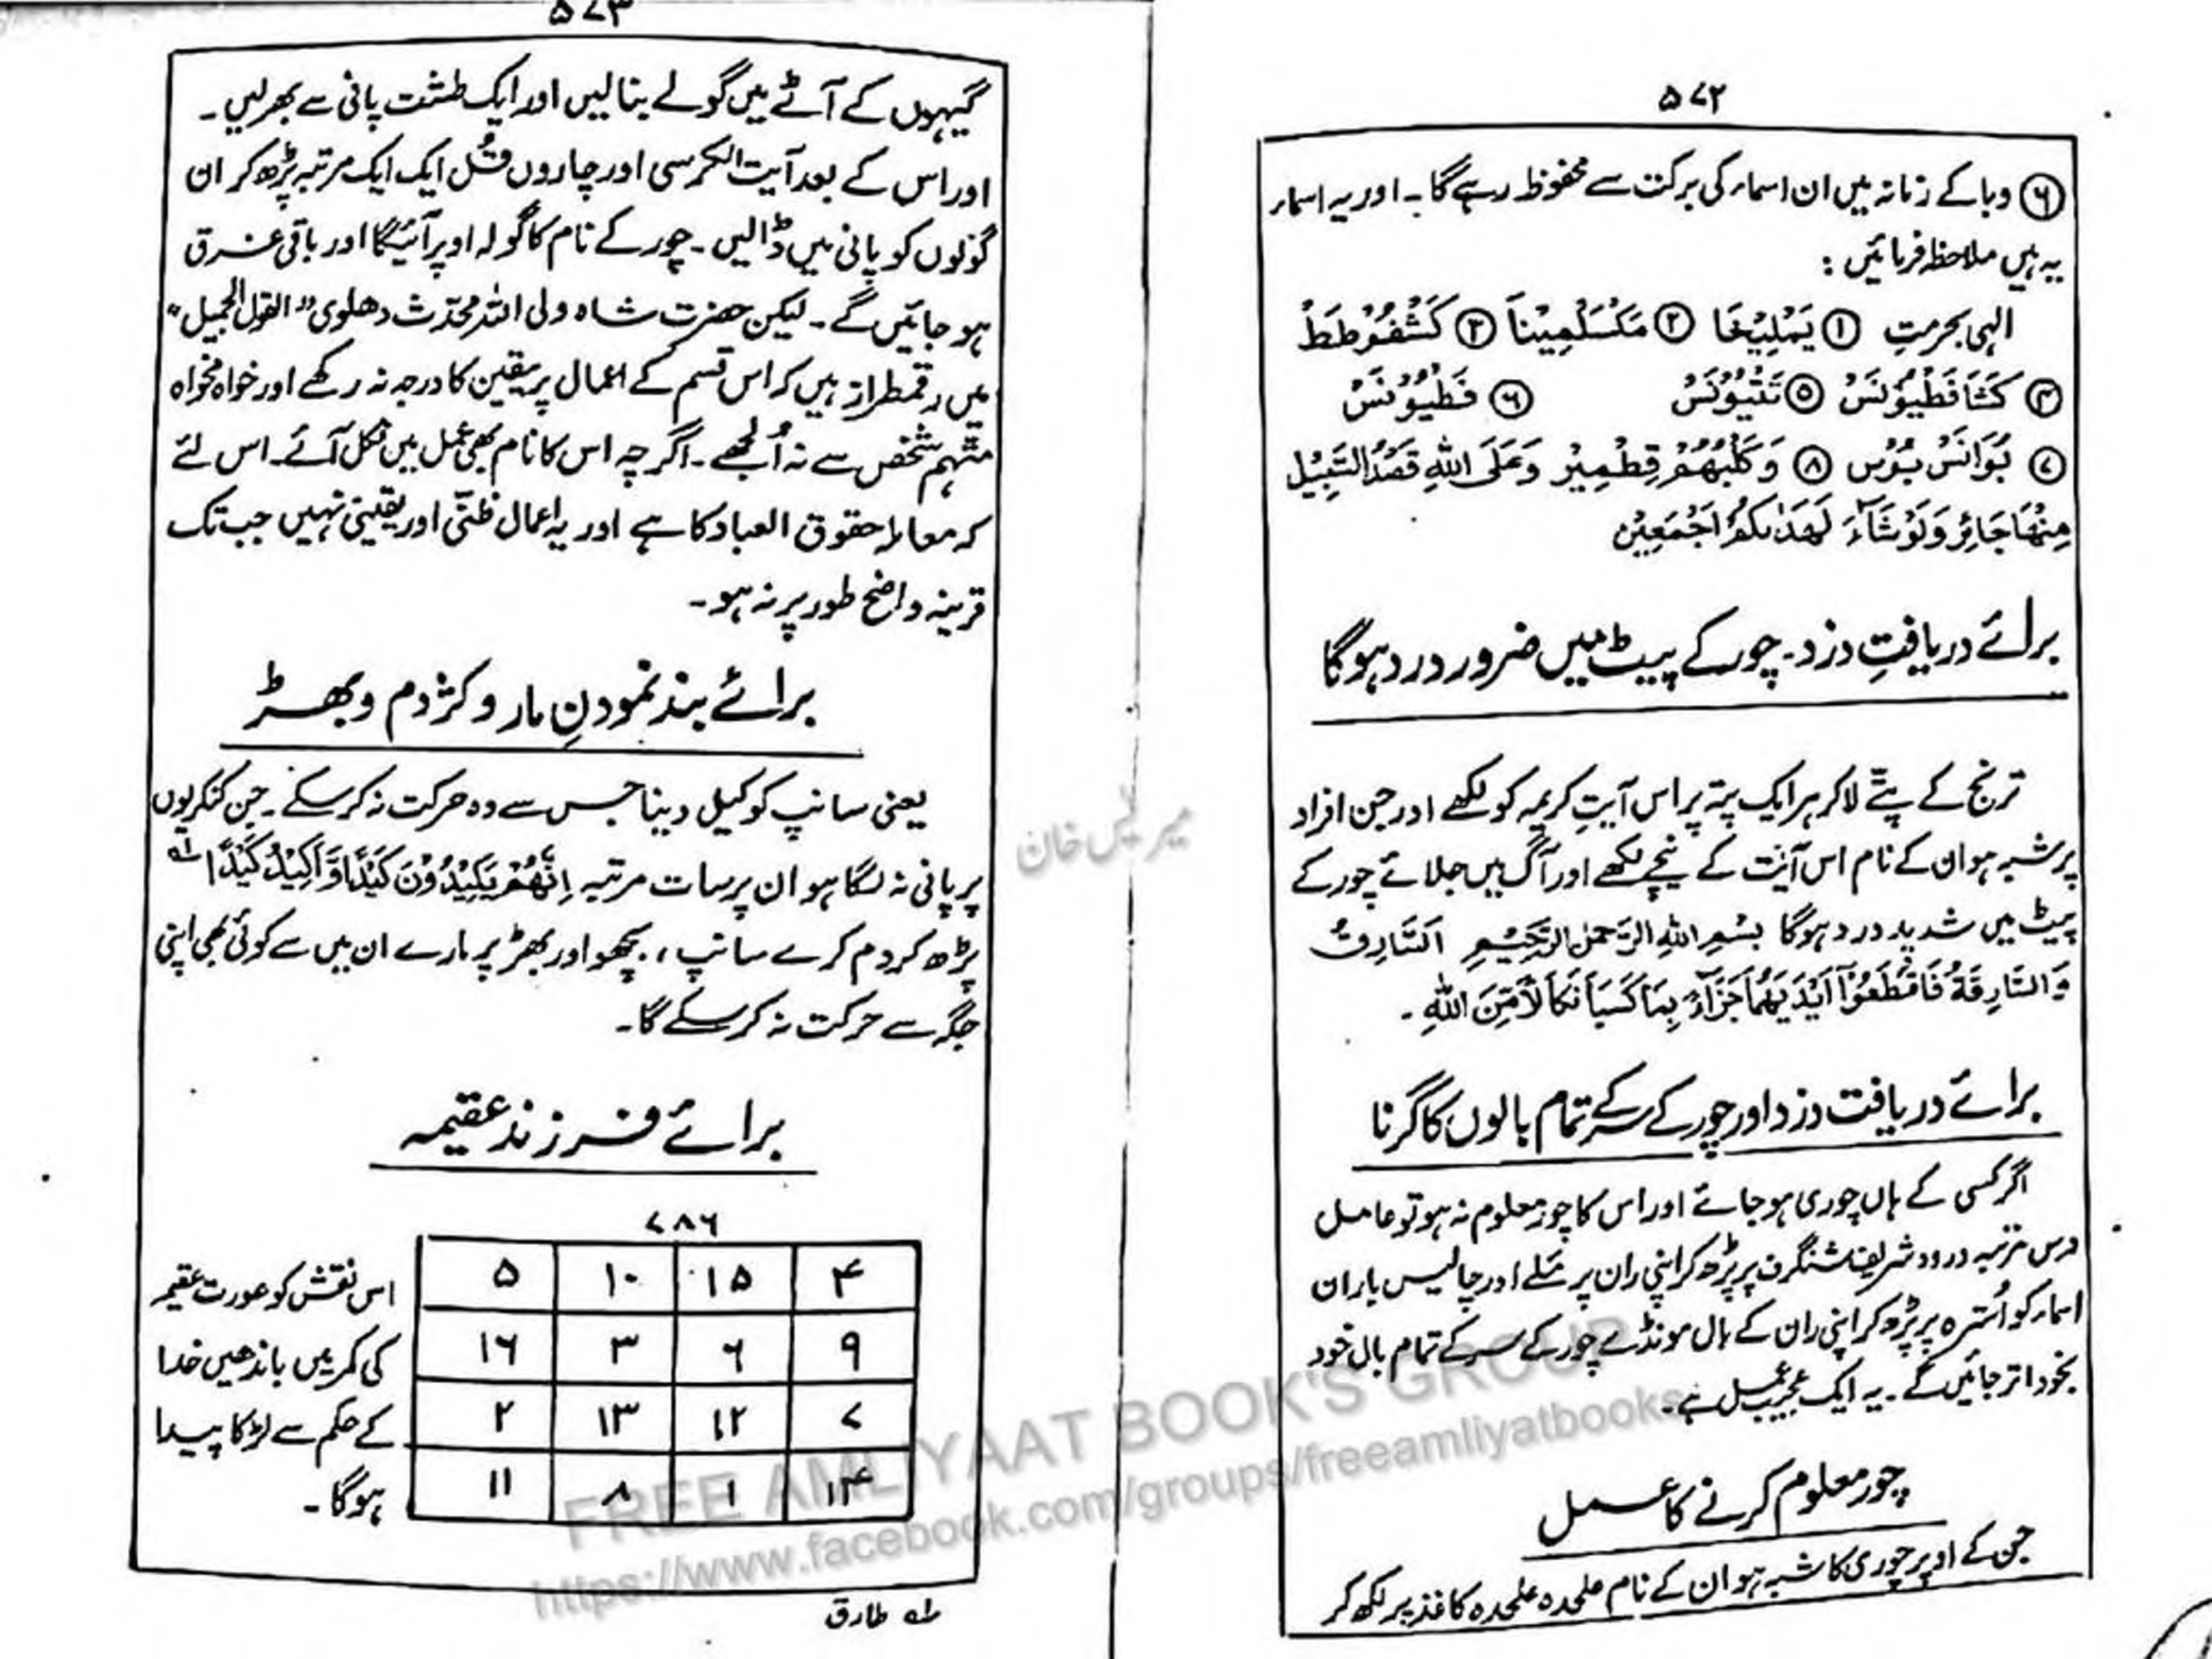 ۵۷۲
⑥ وبا کے زمانہ میں ان اسماء کی برکت سے محفوظ رہے گا۔ اور یہ اسماء
یہ ہیں ملاحظہ فرمائیں :
الہی بحرمتِ ① یَمْلِیْخَا ② مَکْسَلْمِیْنَا ③ کَشْفُوْطَطْ
④ کَشَافَطْیُوْنَسْ ⑤ تَتْیُوْنَسْ ⑥ فَطْیُوْنَسْ
⑦ بُوَانَسْ بُوْس ⑧ وَکَلْبُهُمْ قِطْمِیْر وَعَلَی اللهِ قَصْدُ السَّبِیْل
مِنْهَا جَائِرٌ وَلَوْ شَآءَ لَهَدٰىكُمْ اَجْمَعِیْن
برائے دریافتِ دزد۔ چور کے پیٹ میں ضرور درد ہوگا
ترنج کے پتّے لاکر ہر ایک پتہ پر اس آیتِ کریمہ کو لکھے اور جن افراد
پر شبہ ہو ان کے نام اس آیت کے نیچے لکھے اور آگ میں جلائے چور کے
پیٹ میں شدید درد ہوگا بِسْمِ اللهِ الرَّحْمٰنِ الرَّحِیْمِ اَلسَّارِقُ
وَالسَّارِقَةُ فَاقْطَعُوْآ اَیْدِیَهُمَا جَزَآءً بِمَا کَسَبَا نَکَالًا مِّنَ اللهِ ۔
برائے دریافت دزد اور چور کے سر کے تمام بالوں کا گرنا
اگر کسی کے ہاں چوری ہو جائے اور اس کا چور معلوم نہ ہو تو عامل
دس مرتبہ درود شریف شنگرف پر پڑھ کر اپنی ران پر ملے اور چالیس بار ان
اسماء کو اُسترہ پر پڑھ کر اپنی ران کے بال مونڈے چور کے سر کے تمام بال خود
بخود اتر جائیں گے۔ یہ ایک عجیب عمل ہے۔
چور معلوم کرنے کا عمل
جن کے اوپر چوری کا شبہ ہو ان کے نام علیحدہ علیحدہ کاغذ پر لکھ کر
۵۷۳
گیہوں کے آٹے میں گولے بنا لیں اور ایک طشت پانی سے بھر لیں۔
اور اس کے بعد آیت الکرسی اور چاروں قُل ایک ایک مرتبہ پڑھ کر ان
گولوں کو پانی میں ڈالیں۔ چور کے نام کا گولہ اوپر آئیگا اور باقی غرق
ہو جائیں گے۔ لیکن حضرت شاہ ولی اللہ محدّث دھلوی "القول الجمیل"
میں رقمطراز ہیں کہ اس قسم کے اعمال پر یقین کا درجہ نہ رکھے اور خواہ مخواہ
متّہم شخص سے نہ اُلجھے۔ اگرچہ اس کا نام بھی عمل میں نکل آئے۔ اس لئے
کہ معاملہ حقوق العباد کا ہے اور یہ اعمال ظنّی اور یقینی نہیں جب تک
قرینہ واضح طور پر نہ ہو۔
برائے بند نمودنِ مار و کژدم و بھڑ
یعنی سانپ کو کیل دینا جس سے وہ حرکت نہ کرسکے۔ جن کنکریوں
پر پانی نہ لگا ہو ان پر سات مرتبہ اِنَّهُمْ یَکِیْدُوْنَ کَیْدًا وَّاَکِیْدُ کَیْدًا ؎۱
پڑھ کر دم کرے سانپ، بچھو اور بھڑ پر مارے ان میں سے کوئی بھی اپنی
جگہ سے حرکت نہ کرسکے گا۔
برائے فرزند عقیمہ
۷۸۶
۴ ۱۵ ۱۰ ۵
۹ ۶ ۳ ۱۶
۷ ۱۲ ۱۳ ۲
۱۴ ۱ ۸ ۱۱
اس نقش کو عورت عقیمہ
کی کمر میں باندھیں خدا
کے حکم سے لڑکا پیدا
ہوگا۔
؎۱ طارق
FREE AMLIYAAT BOOK'S GROUP
https://www.facebook.com/groups/freeamliyatbooks